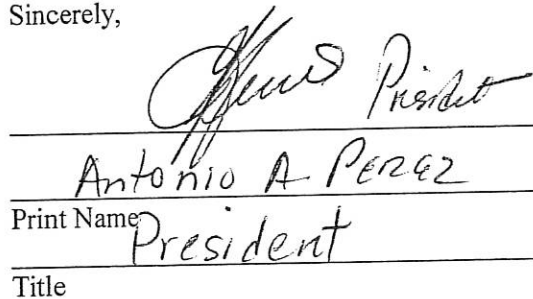 Sincerely,
President
Antonio A PEREZ
Print Name
President
Title